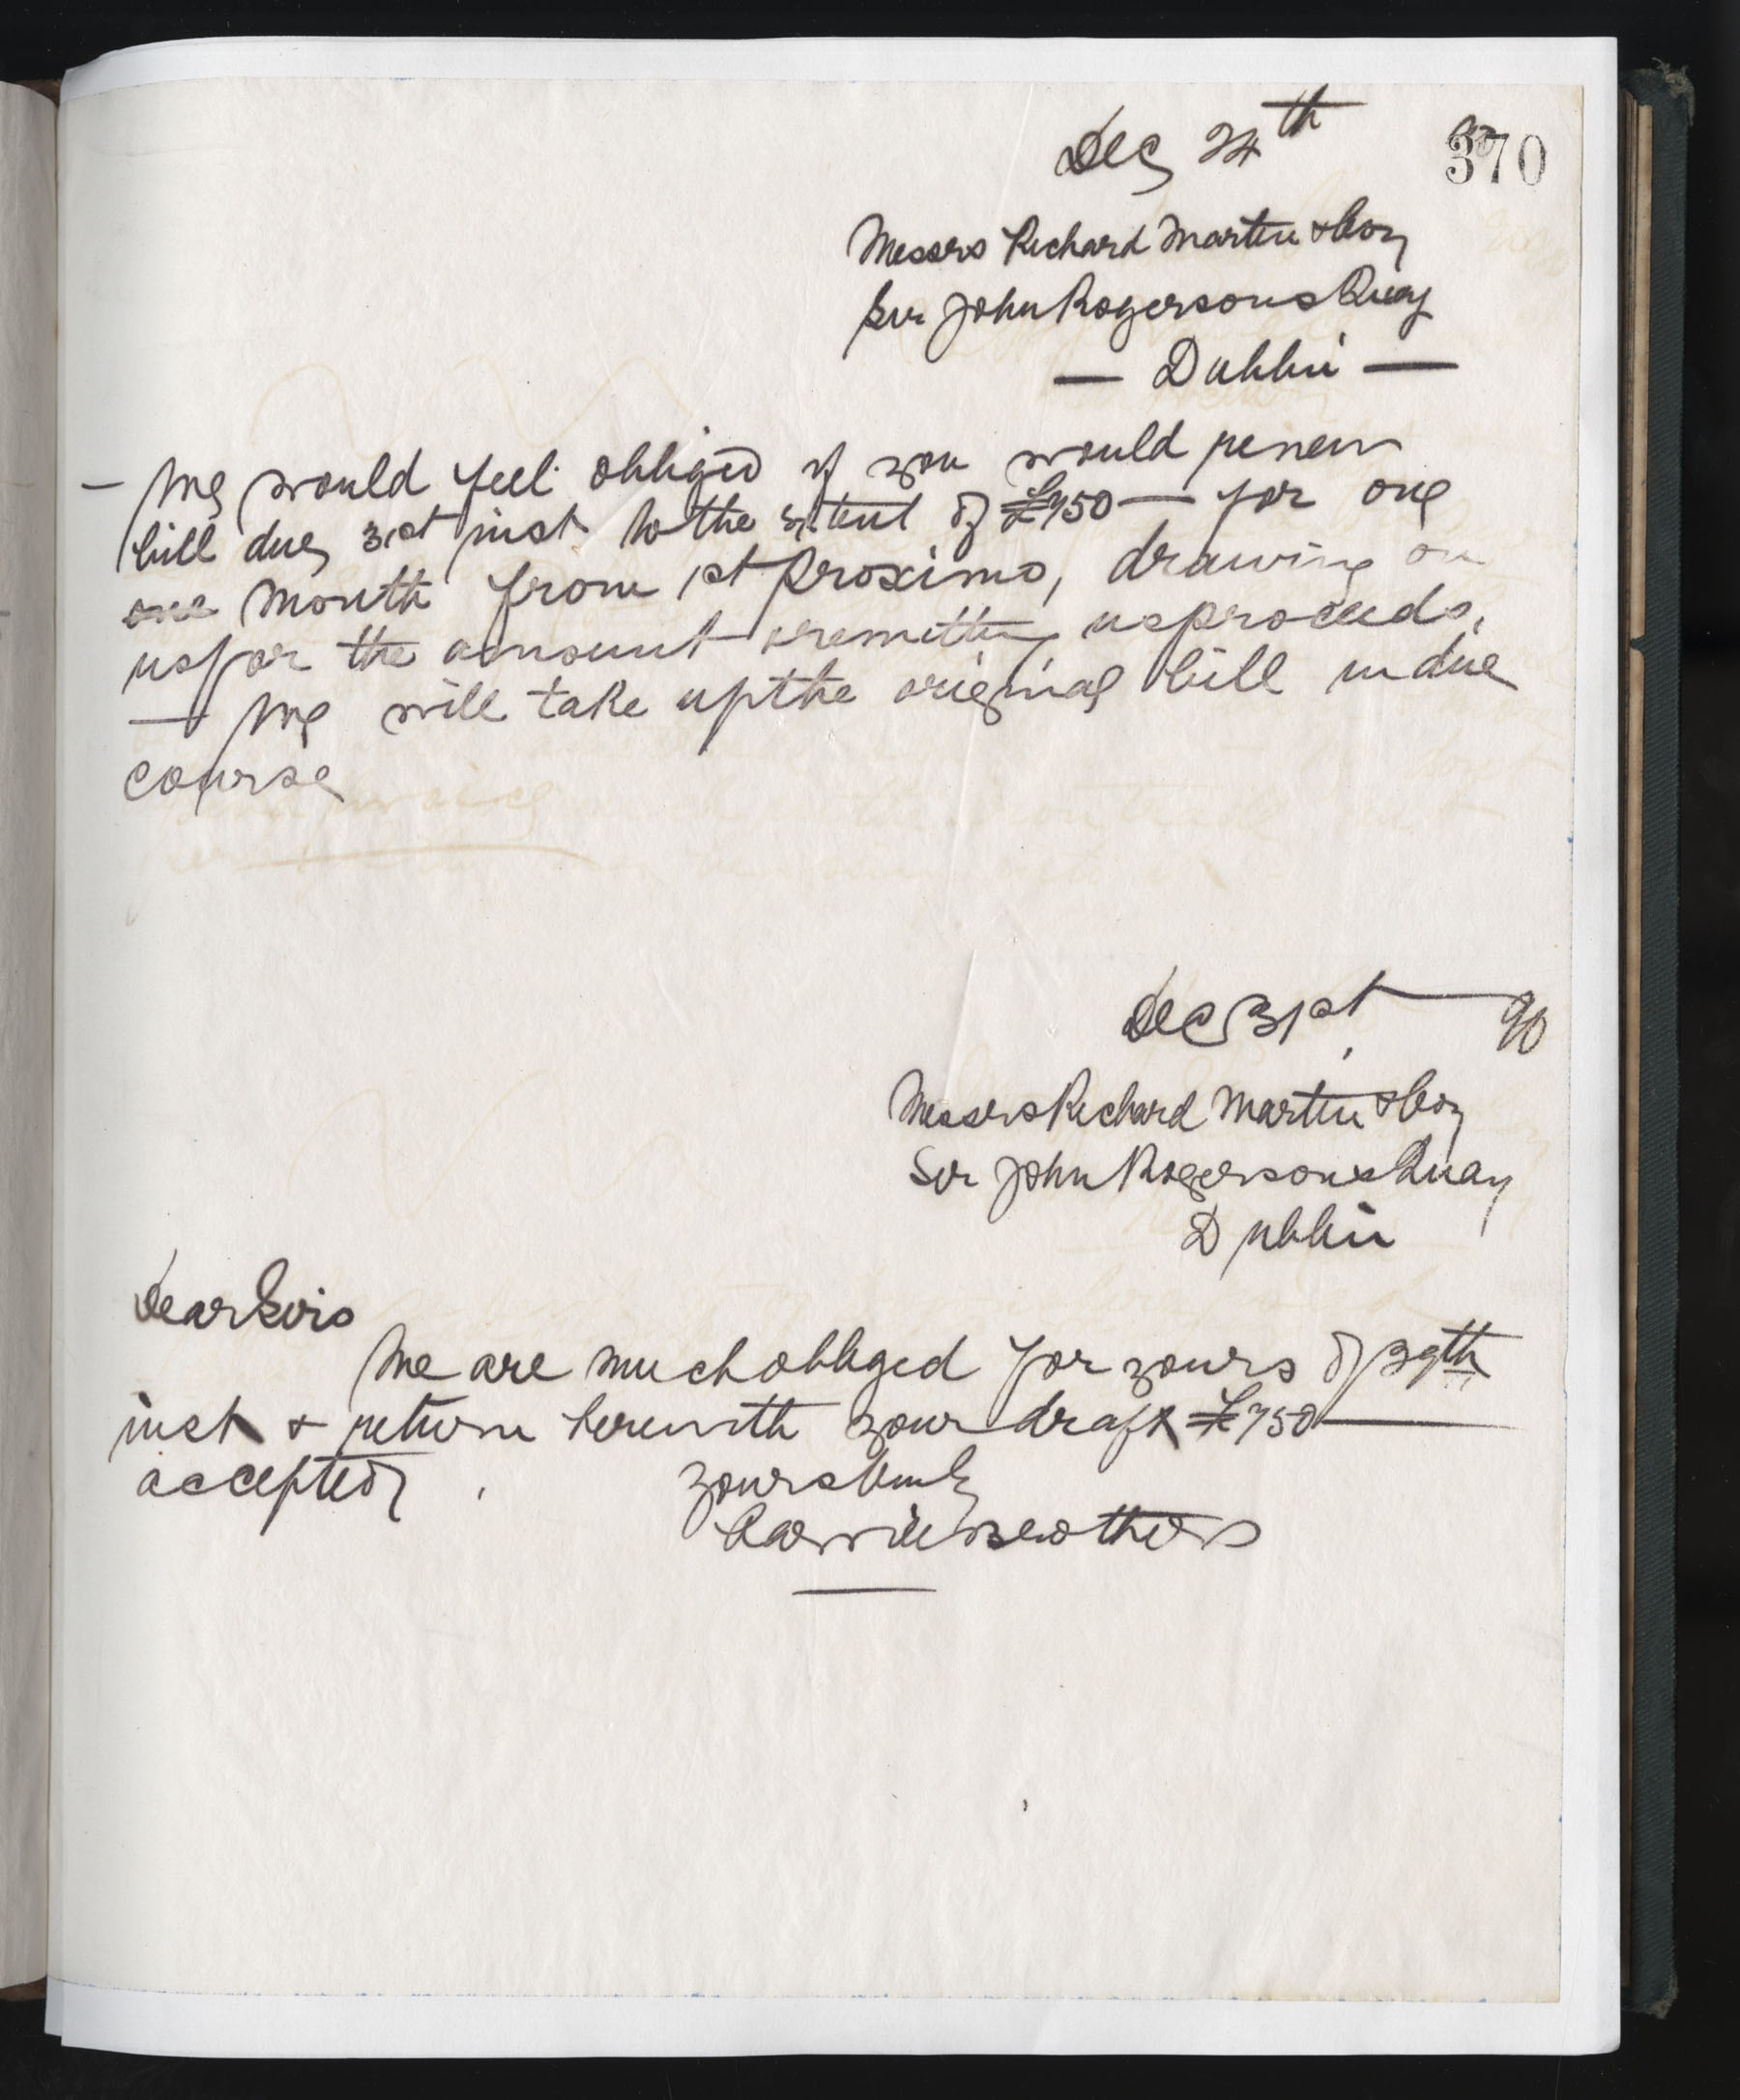 Dec 24th 90
370
Messrs Richard Martin & Coy
Sir John Rogersons Quay
— Dublin —
— We would feel obliged if you would renew
bill due 31st inst to the extent of £750 — for one
one month from 1st proximo, drawing on
us for the amount & remitting us proceeds.
— We will take up the original bill in due
course
Dec 31st 90
Messrs Richard Martin & Coy
Sir John Rogersons Quay
Dublin
Dear Sirs
We are much obliged for yours of 29th
inst & return herewith your draft £750 —
accepted.
Yours truly
Brothers